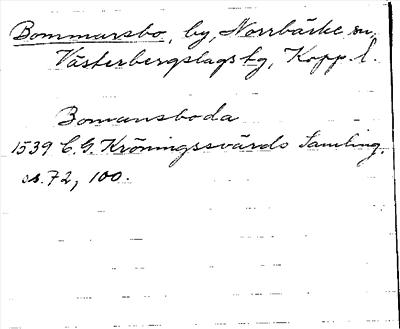 Bommarsbo, by, Norrbärke sn,
Västerbergslags tg, Kopp. l.
Bomansboda
1539 C.G. Kröningssvärds Samling.
ss. 72, 100.